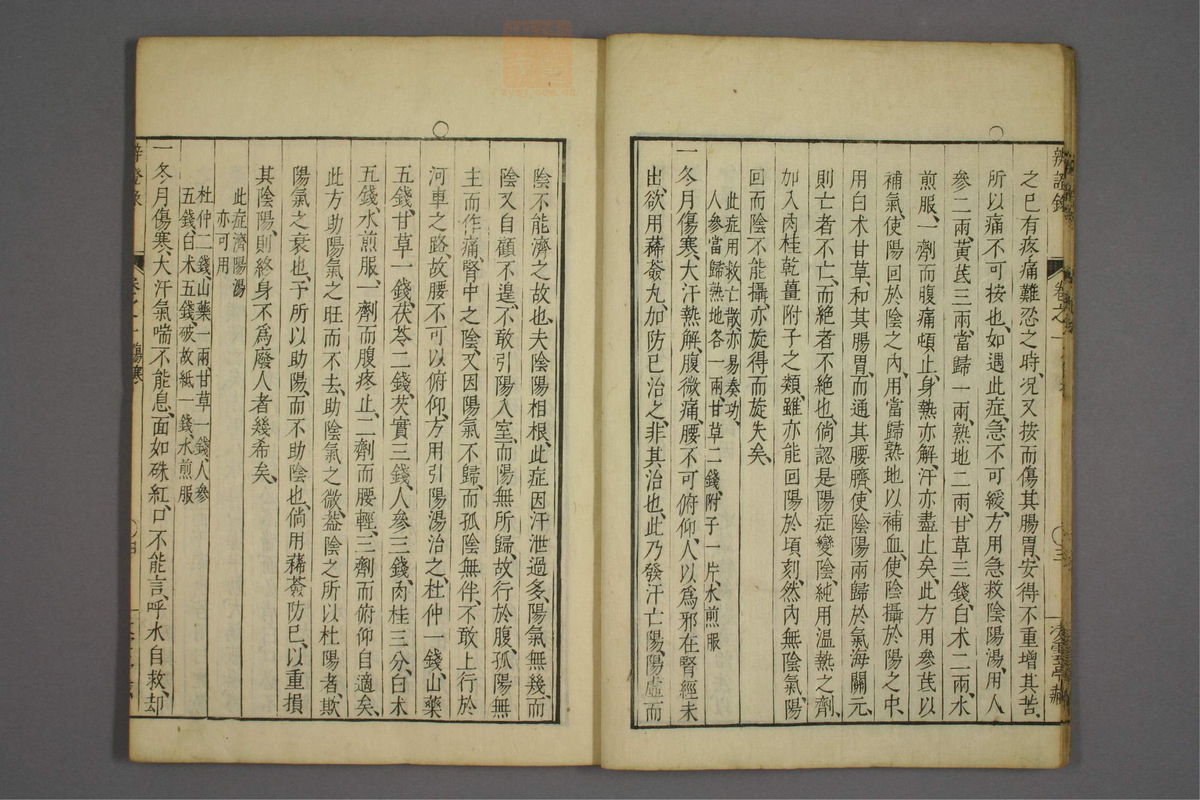 之已有疼痛難忍之時、况又按而傷其腸胃、安得不重增其苦、
所以痛不可按也、如遇此症、急不可緩、方用急救陰陽湯、用人
參二兩、黃芪三兩、當歸一兩、熟地二兩、甘草三錢、白术二兩、水
煎服、一劑而腹痛頓止、身熱亦解、汗亦盡止矣、此方用參芪以
補氣、使陽回於陰之內、用當歸熟地以補血、使陰攝於陽之中、
用白术甘草、和其腸胃、而通其腰臍、使陰陽兩歸於氣海關元、
則亡者不亡、而絕者不絕也、倘認是陽症變陰、純用溫熱之劑、
加入肉桂乾薑附子之類、雖亦能回陽於頃刻、然內無陰氣、陽
回而陰不能攝、亦旋得而旋失矣、
此症用救亡散亦易奏功、
人參當歸熟地各一兩、甘草二錢、附子一片、水煎服
一冬月傷寒、大汗熱解、腹微痛、腰不可俯仰、人以爲邪在腎經未
出、欲用豨薟丸、加防已治之、非其治也、此乃發汗亡陽、陽虛而
陰不能濟之故也、夫陰陽相根、此症因汗泄過多、陽氣無幾、而
陰又自顧不遑、不敢引陽入室、而陽無所歸、故行於腹、孤陽無
主而作痛、腎中之陰、又因陽氣不歸、而孤陰無伴、不敢上行於
河車之路、故腰不可以俯仰、方用引陽湯治之、杜仲一錢、山藥
五錢、甘草一錢、茯苓二錢、芡實三錢、人參三錢、肉桂三分、白术
五錢、水煎服、一劑而腹疼止、二劑而腰輕、三劑而俯仰自適矣、
此方助陽氣之旺而不去、助陰氣之微、葢陰之所以杜陽者、欺
陽氣之衰也、予所以助陽、而不助陰也、倘用豨薟防已、以重損
其陰陽、則終身不爲廢人者幾希矣、
此症濟陽湯
亦可用
杜仲二錢、山藥一兩、甘草一錢、人參
五錢、白术五錢、破故紙一錢、水煎服
一冬月傷寒、大汗氣喘不能息、面如硃紅、口不能言、呼水自救、却